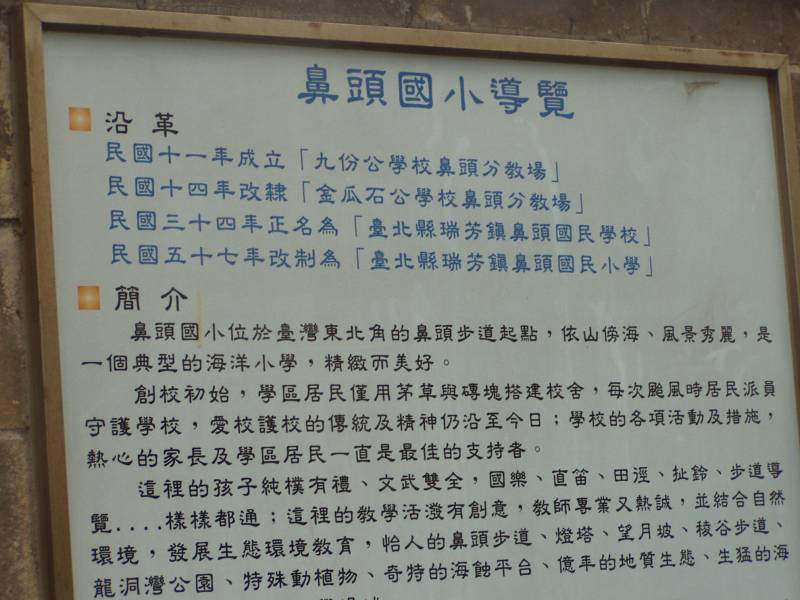 鼻頭國小導覽
沿革
民國十一年成立「九份公學校鼻頭分教場」
民國十四年改隸「金瓜石公學校鼻頭分教場」
民國三十四年正名為「臺北縣瑞芳鎮鼻頭國民學校」
民國五十七年改制為「臺北縣瑞芳鎮鼻頭國民小學」
簡介
鼻頭國小位於臺灣東北角的鼻頭步道起點，依山傍海、風景秀麗，是
一個典型的海洋小學，精緻而美好。
創校初始，學區居民僅用茅草與磚塊搭建校舍，每次颱風時居民派員
守護學校，愛校護校的傳統及精神仍沿至今日；學校的各項活動及措施，
熱心的家長及學區居民一直是最佳的支持者。
這裡的孩子純樸有禮、文武雙全，國樂、直笛、田徑、扯鈴、步道導
覽....樣樣都通；這裡的教學活潑有創意，教師專業又熱誠，並結合自然
環境，發展生態環境教育，怡人的鼻頭步道、燈塔、望月坡、稜谷步道、
龍洞灣公園、特殊動植物、奇特的海蝕平台、億年的地質生態、生猛的海